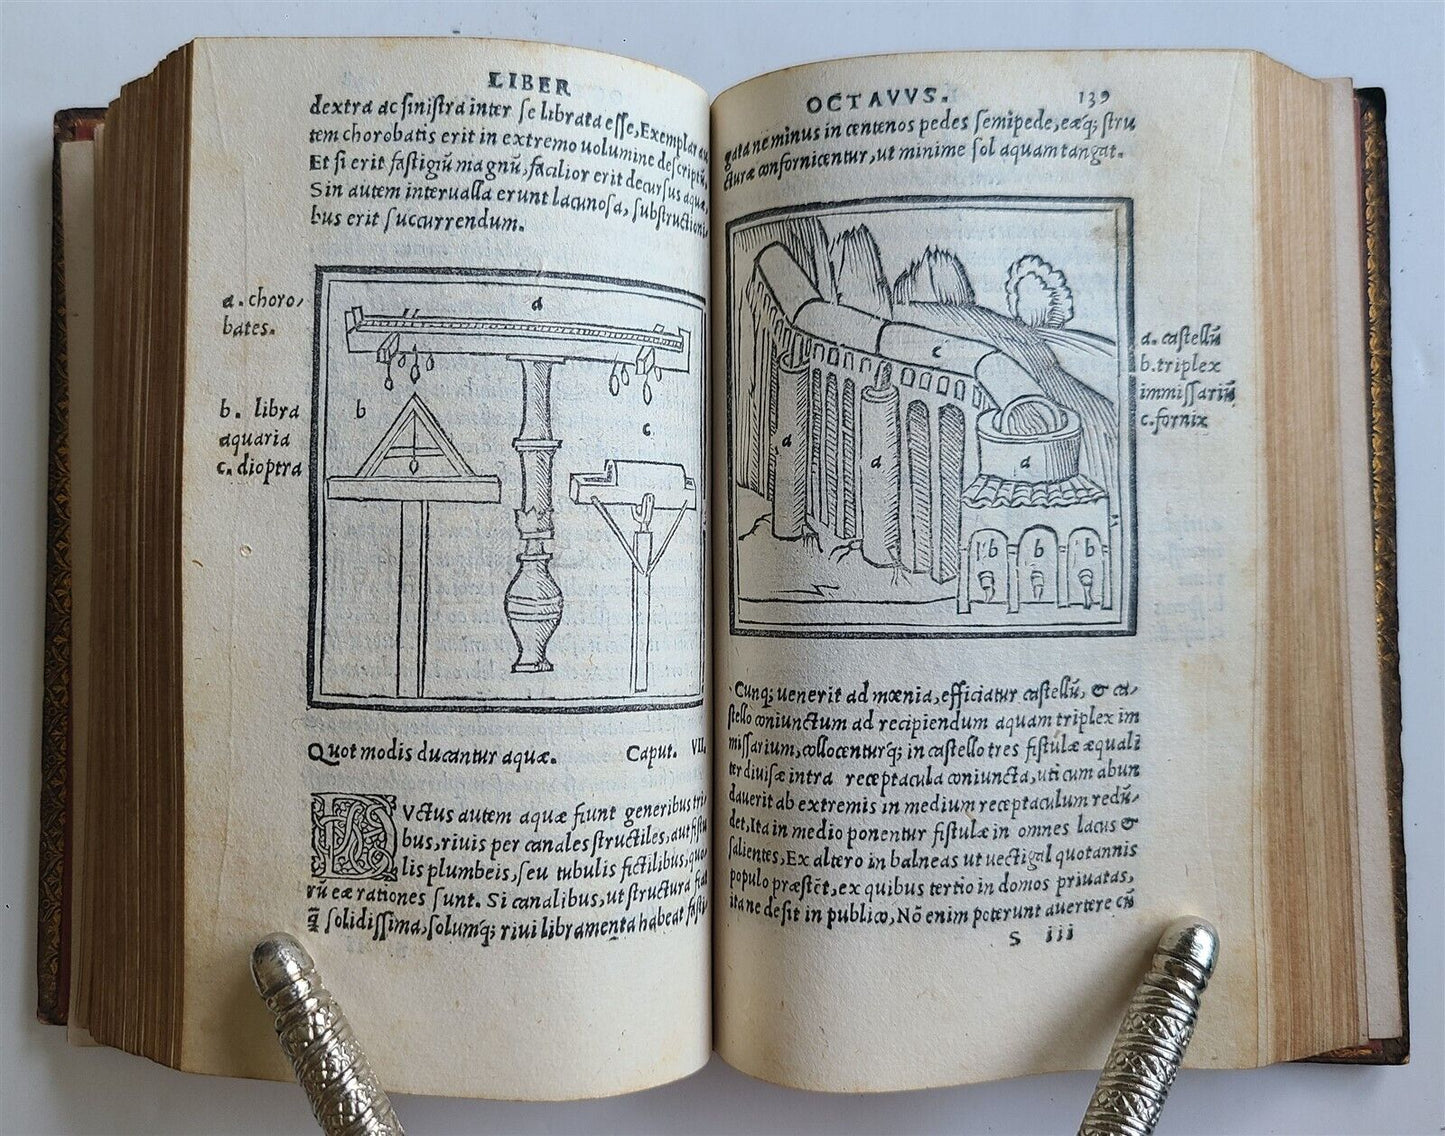 LIBER
dextra ac sinistra inter se librata esse, Exemplar au
tem chorobatis erit in extremo uolumine descriptũ,
Et si erit fastigiũ magnũ, facilior erit decursus aquæ,
Sin autem interualla erunt lacunosa, substructioni⸗
bus erit succurrendum.
a. choro⸗
bates.
b. libra
aquaria
c. dioptra
a
b
c
Quot modis ducantur aquæ. Caput. VII.
DVctus autem aquæ fiunt generibus tri⸗
bus, riuis per canales structiles, aut fistu
lis plumbeis, seu tubulis fictilibus, quo⸗
rũ eæ rationes sunt. Si canalibus, ut structura fiat
q̃ solidissima, solumq; riui libramenta habeat fasti⸗
OCTAVVS. 139
gata ne minus in centenos pedes semipede, eæq; stru
cturæ confornicentur, ut minime sol aquam tangat.
a. castellũ
b. triplex
immissariũ
c. fornix
c
a
a
a
b
b
b
Cunq; uenerit ad mœnia, efficiatur castellũ, & ca⸗
stello coniunctum ad recipiendum aquam triplex im
missarium, collocenturq; in castello tres fistulæ æquali
ter diuisæ intra receptacula coniuncta, uti cum abun
dauerit ab extremis in medium receptaculum redũ⸗
det, Ita in medio ponentur fistulæ in omnes lacus &
salientes, Ex altero in balneas ut uectigal quotannis
populo præstẽt, ex quibus tertio in domos priuatas,
ita ne desit in publico, Nõ enim poterunt auertere cũ
S iii